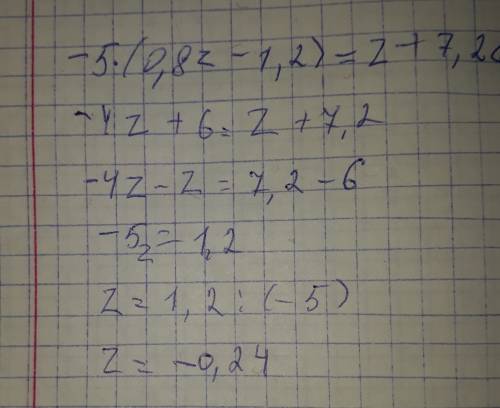 -5·(0,8z-1,2)=z+7,2
-4z+6=z+7,2
-4z-z=7,2-6
-5z=1,2
z=1,2:(-5)
z=-0,24